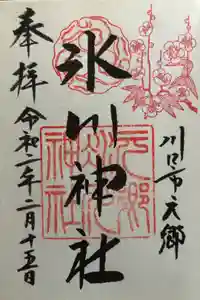 川口市元郷
氷川神社
元郷
氷川
神社
奉拝
令和二年二月十五日